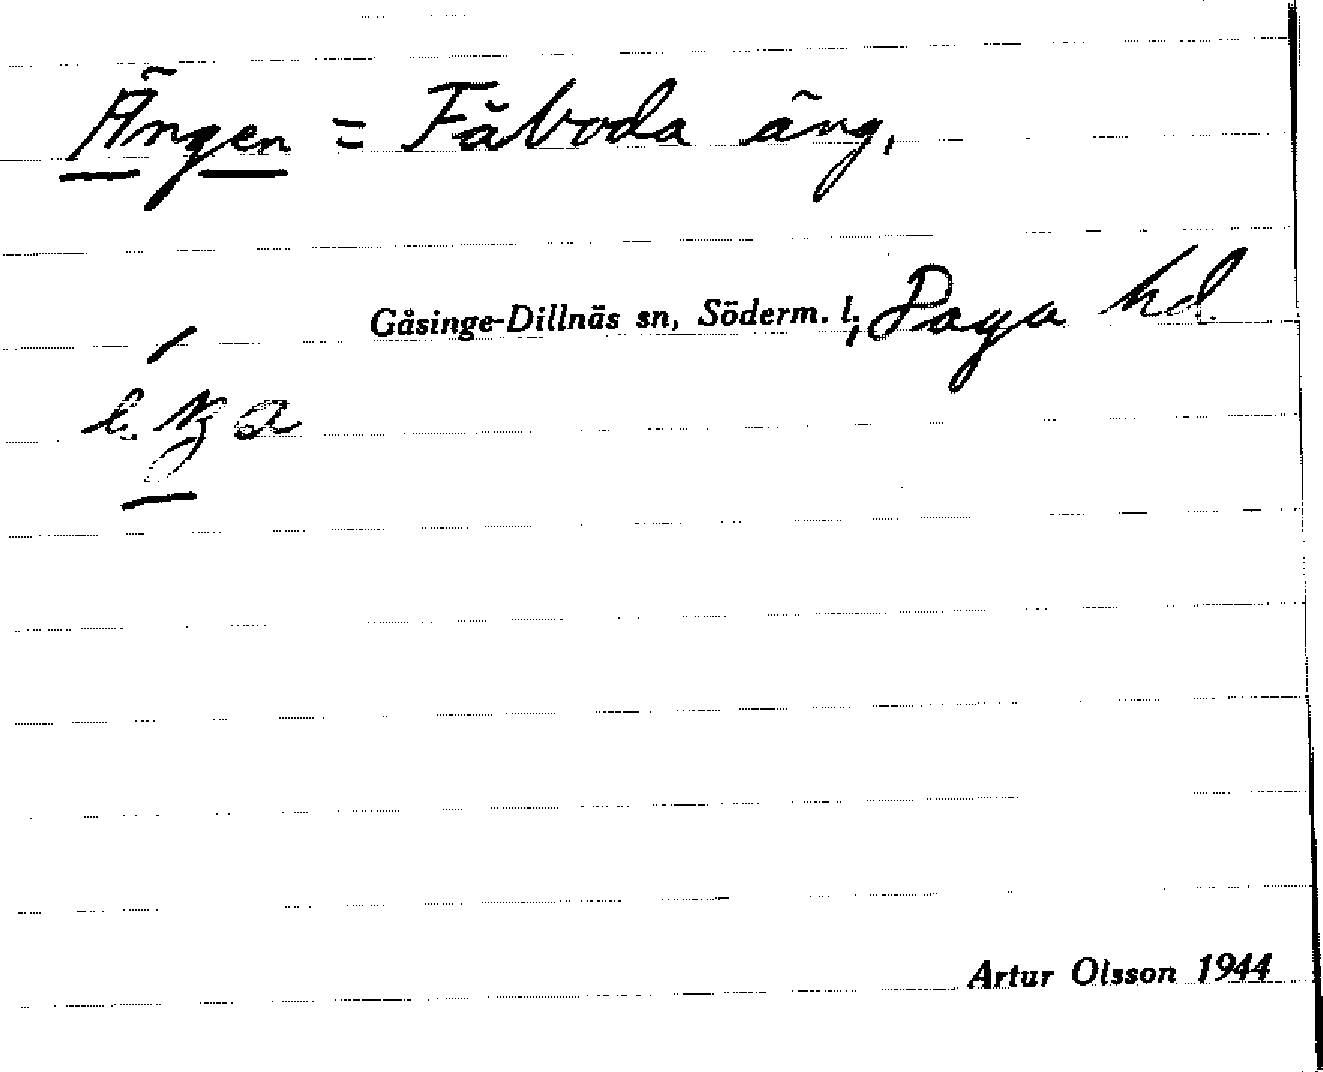 Ängen = Fäboda äng,
Gåsinge-Dillnäs sn, Söderm. l, Daga hd
Artur Olsson 1944